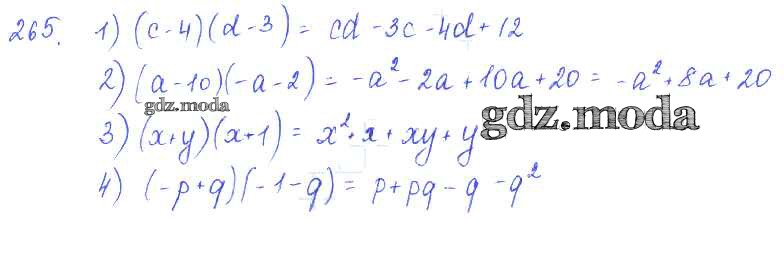 265. 1) (c-4)(d-3) = cd -3c -4d +12
2) (a-10)(-a-2) = -a² - 2a + 10a + 20 = -a² + 8a + 20
gdz.moda
3) (x+y)(x+1) = x² + x + xy + y gdz.moda
4) (-p+q)(-1-q) = p+pq - q - q²